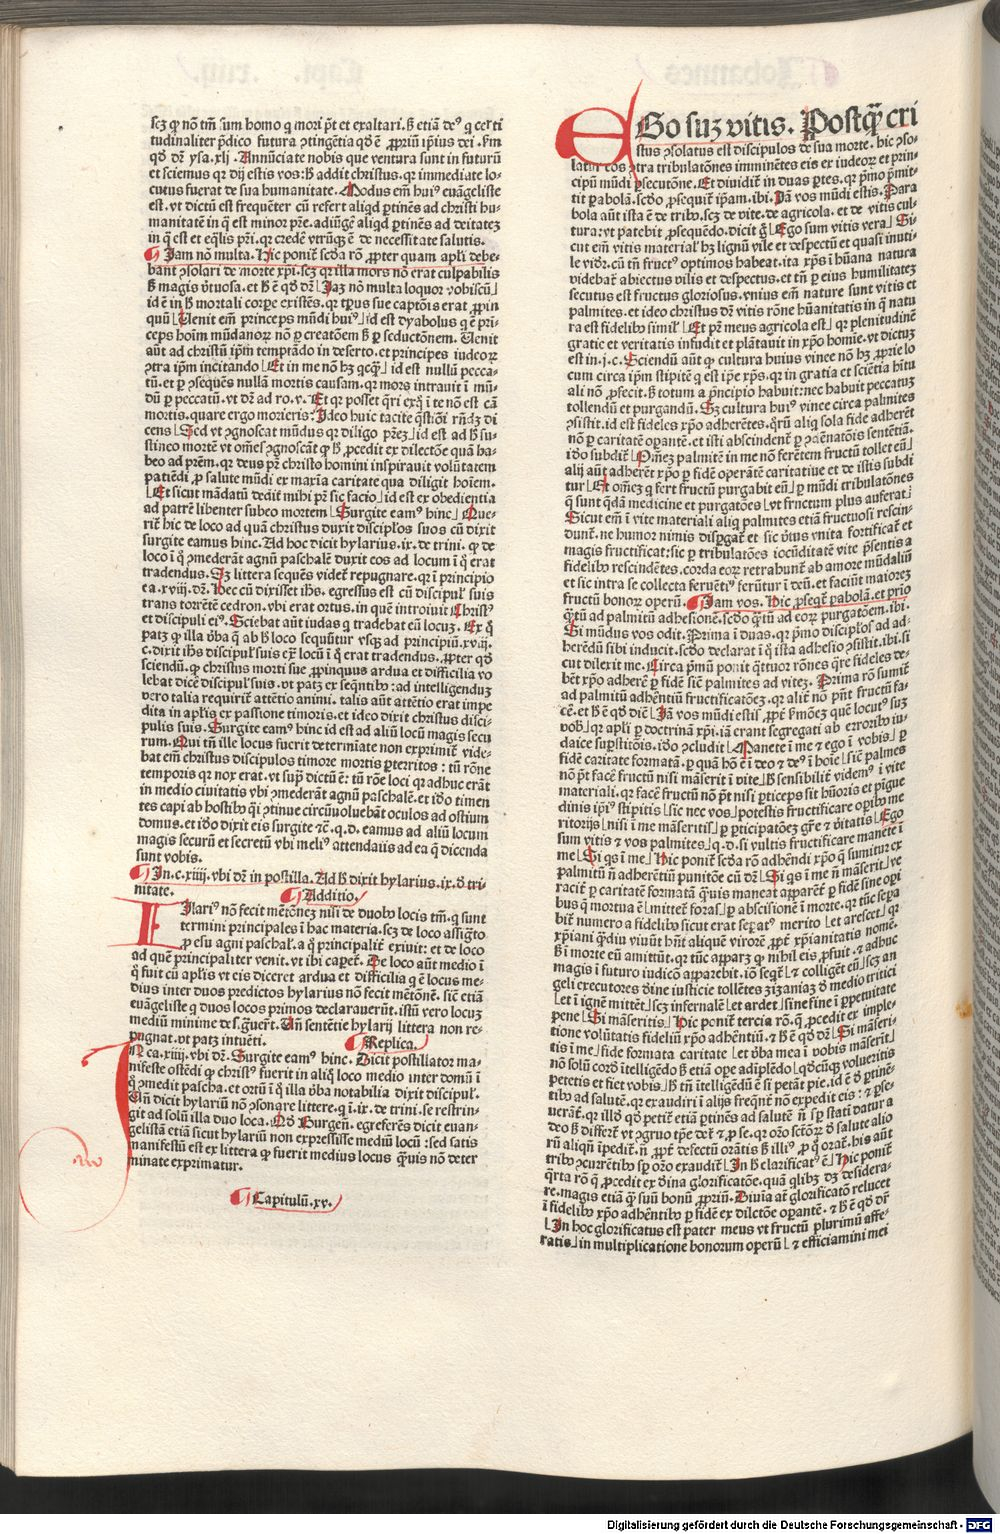 scz ꝙ nō tm̄ sum homo q mori pt̄ et exaltari. ß etiā de⁹ q certi
tudinaliter p̄dico futura ꝯtingētia qd̄ ē ꝓpriū ip̄ius dei. ẜm
qd̄ dr̄ ysa. xlj. Annūciate nobis que ventura sunt in futurū
et sciemus qꝛ dij estis vos: ß addit christus. qꝛ immediate lo-
cutus fuerat de sua humanitate. Modus em̄ hui⁹ euāgeliste
est. vt dictū est frequēter cū refert aliqd ꝑtinēs ad christi hu-
manitatē in q̄ est minor pr̄e. adiūgē aliqd ꝑtinēs ad deitatez
in q̄ est et eq̄lis pr̄i. qꝛ crede vtrūqꝫ ē de necessitate salutis.
Jam nō multa. Hic ponit̄ scd̄a rō ꝓpter quam apl̄i debe-
bant ꝯsolari de morte xp̄i. scz qꝛ illa mors nō erat culpabilis
ß magis v̄tuosa. et ß ē qd̄ dr̄ Jaz nō multa loquor vobiscū
id ē in ß mortali corpe existēs. qꝛ tp̄us sue captōis erat ꝓpin
quū Uenit em̄ princeps mūdi hui⁹ id est dyabolus q ē pri-
ceps hoīm mūdanoꝝ nō ꝑ creatōem ß ꝑ seductōnem. Uenit
aūt ad christū ip̄m temptādo in deserto. et principes iudeoꝝ
ꝯtra ip̄m incitando Et in me nō hz qcꝗ id est nullū pecca-
tū. et ꝑ ꝯsequēs nullā mortis causam. qꝛ mors intrauit ī mū-
dū ꝑ peccatū. vt dr̄ ad ro. v. Et qꝛ posset q̄ri exq̄ ī te nō est cā
mortis. quare ergo morieris: Ideo huic tacite q̄stiōi rn̄dz di
cens Sed vt ꝯgnoscat mūdus qꝛ diligo pr̄ez id est ad ß su-
stineo mortē vt om̄es ꝯgnoscāt ꝙ ß ꝓcedit ex dilectōe quā ha-
beo ad pr̄em. qꝛ deus pr̄ christo homini inspirauit volūtatem
patiēdi ꝓ salute mūdi ex maxīa caritate qua diligit hoīem.
Et sicut mādatū dedit mihi pr̄ sic facio id est ex obedientia
ad patrē libenter subeo mortem Surgite eam⁹ hinc Que-
rit̄ hic de loco ad quā christus duxit discipl̄os suos cū dixit
surgite eamus hinc. Ad hoc dicit hylarius. ix. de trini. ꝙ de
loco ī q̄ ꝯmederāt agnū paschalē duxit eos ad locum ī q̄ erat
tradendus. Sz littera sequēs videt̄ repugnare. qꝛ ī principio
ca. xviij. dr̄. Hec cū dixisset ihs. egressus est cū discipul̄ suis
trans torētē cedron. vbi erat ortus. in quē introiuit Christ⁹
et discipuli ei⁹. Sciebat aūt iudas q tradebat eū locuz. Ex q̄
patz ꝙ illa v̄ba q̄ ab ß loco sequūtur vsqꝫ ad principiū. xviij.
c. dixit ihs discipul̄ suis cr̄ locū ī q̄ erat tradendus. ꝓpter qd̄
sciendū. ꝙ christus morti sue ꝓpinquus ardua et difficilia vo
lebat dicē discipul̄ suis. vt patz ex seq̄ntib⁹: ad intelligenduz
vero talia requirit̄ attētio animi. talis aūt attētio erat impe
dita in apl̄is ex passione timoris. et ideo dixit christus disci-
pulis suis. Surgite eam⁹ hinc id est ad aliū locū magis secu
rum. Qui tn̄ ille locus fuerit determīate non exprimit̄ vide-
bat em̄ christus discipulos timore mortis ꝑterritos: tū rōne
temporis qꝛ nox erat. vt sup̄ dictū ē: tū rōe loci qꝛ adhuc erāt
in medio ciuitatis vbi ꝯmederāt agnū paschalē. et iō timen
tes capi ab hostib⁹ q̄i ꝯtinue circūuoluebāt oculos ad ostium
domus. et iō dixit eis surgite ⁊c̄. q. d. eamus ad aliū locum
magis securū et secretū vbi meli⁹ attendatis ad ea q̄ dicenda
sunt vobis.
In. c. xiiij. vbi dr̄ in postilla. Ad ß dixit hylarius. ix. d̄ tri-
nitate.
Additio.
Hilari⁹ nō fecit mētōnez nisi de duob⁹ locis tm̄. q sunt
termini principales ī hac materia. scz de loco assigto
ꝓ esu agni paschal̄. a q̄ principalit̄ exiuit: et de loco
ad quē principaliter venit. vt ibi caperet̄. De loco aūt medio ī
q̄ fuit cū apl̄is vt eis diceret ardua et difficilia q ē locus me-
dius inter duos predictos hylarius nō fecit mētōnē. sic̄ etiā
euāgeliste q duos locos primos declarauerūt. istū vero locuz
mediū minime descr̄ꝑserūt. Uñ sentētie hylarij littera non re-
pugnat. vt patz intuēti.
Replica.
In ca. xiiij. vbi dr̄. Surgite eam⁹ hinc. Dicit postillator ma-
nifeste ostēdi ꝙ christ⁹ fuerit in aliq̄ loco medio inter domū ī
q̄ ꝯmedit pascha. et ortū ī q̄ illa v̄ba notabilia dixit discipul̄.
Uñ dicit hylariū nō ꝯsonare littere. q̄ ī. ix. de trini. se restrin-
git ad solū illa duo loca. Qd̄ Burgeñ. egreferēs dicit euan-
gelistā etiā sicut hylariū non expressisse mediū locū: sed satis
manifestū est ex littera ꝙ fuerit medius locus q̄uis nō deter
minate exprimatur.
Capitulū. xv.
EGo suz vitis. Postꝙ̄ cri
stus ꝯsolatus est discipulos de sua morte. hic ꝯso-
latur eos ꝯtra tribulatōnes imminētes eis ex iudeoꝝ et prin-
cipū mūdi ꝑsecutōne. Et diuidit̄ in duas ꝑtes. qꝛ p̄mo p̄mit-
tit ꝑabolā. scd̄o ꝓsequit̄ ip̄am. ibi. Jā vos mūdi estis. Para
bola aūt ista ē de trib⁹. scz de vite. de agricola. et de vitis cul-
tura: vt patebit ꝓsequēdo. dicit g̊ Ego sum vitis vera Si-
cut em̄ vitis material̄ hz lignū vile et despectū et quasi inuti-
le vidr̄. cū tn̄ fruct⁹ optimos habeat. ita xp̄s ī hūana natura
videbat̄ abiectus vilis et despectus. et tn̄ ꝑ eius humilitatez
secutus est fructus gloriosus. vnius em̄ nature sunt vitis et
palmites. et ideo christus dr̄ vitis rōne hūanitatis in q̄ natu
ra est fidelib⁹ simil̄ Et pr̄ meus agricola est qꝛ plenitudinē
gratie et veritatis infudit et plātauit in xp̄o homīe. vt dictuz
est in. j. c. Sciendū aūt ꝙ cultura huius vinee nō hz ꝓprie lo
cum circa ip̄m stipitē q est ip̄e xp̄s. qꝛ in gratia et scīetia nihil
ali nō ꝓfecit. ß totum a p̄ncipio habuit: nec habuit peccatuz
tollendū et purgandū. Sz cultura hui⁹ vinee circa palmites
ꝯsistit. id est fideles xp̄o adherētes. q̄rū aliq sola fide adherēt
nō ꝑ caritatē opantē. et isti abscindent̄ ꝑ ꝯdēnatōis sentētiā.
iō subdit̄ Om̄ez palmitē in me nō ferētem fructū tollet eū
alij aūt adherēt xp̄o ꝑ fidē operātē caritatiue et de istis subdi
tur Et om̄ez q fert fructū purgabit eū ꝑ mūdi tribulatōnes
q̄ sunt q̄dā medicine et purgatōes vt fructum plus auferat
Sicut em̄ ī vite materiali aliq palmites etiā fructuosi rescin-
dunt̄. ne humor nimis dispgat̄ et sic v̄tus vnita fortificat̄ et
magis fructificat: sic ꝑ tribulatōes iocūditatē vite p̄sentis a
fidelib⁹ rescindētes. corda eoꝝ retrahunt̄ ab amore mūdaliū
et sic intra se collecta feruēti⁹ ferūtur ī deū. et faciūt maiorez
fructū honoꝝ operū. Jam vos. Hic ꝓseqt̄ pabolā. et prio
q̄tū ad palmitū adhesionē. scd̄o q̄tū ad eoꝝ purgatōem. ibi.
Si mūdus vos odit. Prima ī duas. qꝛ p̄mo discipl̄os ad ad-
herēdū sibi inducit. scd̄o declarat ī q̄ ista adhesio ꝯsistit. ibi. si
cut dilexit me. Circa p̄mū ponit q̄ttuor rōnes q̄re fideles de-
bēt xp̄o adherē ꝑ fidē sic̄ palmites ad vitez. Prima rō sumit̄
ad palmitū adhētiū fructificatōez. qꝛ alit̄ nō pn̄t fructū fa-
cē. et ß ē qd̄ dic̄ Jā vos mūdi estis ꝓpt̄ ẜmōez quē locut⁹ suz
vob qꝛ apl̄i ꝑ doctrinā xp̄i. iā erant segregati ab erroribꝰ iu-
daice supstitōis. iō ꝯcludit Manete ī me ⁊ ego ī vobis ꝑ
fidē caritate formatā. ꝑ quā hō ē ī deo ⁊ de⁹ ī hoīe sic̄ palmes
nō pt̄ facē fructū nisi māserit ī vite ß sensibilit̄ videm⁹ ī vite
materiali. qꝛ facē fructū nō pt̄ nisi ꝑticeps sit hūoris et pīgue
dinis ip̄i⁹ stipitis sic nec vos potestis fructificare opib⁹ me
ritorijs nisi ī me māseritis ꝑ ꝑticipatōez gr̄e ⁊ v̄itatis Ego
sum vitis ⁊ vos palmites q. d. si vultis fructificare manete ī
me Si qs ī me Hic ponit̄ scd̄a rō adhēndi xp̄o q̄ sumitur ex
palmitū ñ adherētiū punitōe cū dr̄ Si qs ī me ñ māserit ve
racit̄ ꝑ caritatē formatā q̄uis maneat apparēt̄ ꝑ fidē sine opi
bus q̄ mortua ē mittet̄ foras ꝑ abscisionē ī morte. qꝛ tūc sepa
bit̄ numero a fidelib⁹ sicut erat sepat⁹ merito et arescet qꝛ
xp̄iani q̄diu viuūt hn̄t aliquē virorē ꝓpt̄ xp̄ianitatis nomē.
ß ī morte eū amittūt. qꝛ tūc apparz ꝙ nihil eis ꝓfuit. ⁊ adhuc
magis ī futuro iudico apparebit. iō seqt̄ ⁊ colligēt eū scz an
geli executores diuīe iusticie tollētes zizaniaz d̄ medio tritici
et ī ignē mittēt scz infernalē et ardet sine fine ī ppetuitate
pene Si māseritis Hic ponit̄ tercia rō. q̄ ꝓcedit ex imple-
tione volūtatis fideliū xp̄o adhētiū. ⁊ ß ē qd̄ dr̄ Si māseri-
tis ī me fide formata caritate et v̄ba mea ī vobis māserit
nō solū cord̄ ītelligēdo ß etiā opе adīplēdo qd̄cūqꝫ volueritis
petetis et fiet vobis ß tn̄ ītelligēdū ē si petāt pie. id ē d̄ ptinē-
tib⁹ ad salutē. qꝛ exaudiri ī alijs freqn̄t nō expedit eis: ⁊ pse-
uerāt̄. qꝛ illd̄ qd̄ petit̄ etiā ptinēs ad salutē ñ sp stati datur a
deo ß differt̄ vt ꝯgruo tp̄e det̄ ⁊ ꝓ se. qꝛ oro sctōꝝ d̄ salute alio
rū aliqñ īpedit̄. ñ ꝓpt̄ defectū orātis ß illi⁹ ꝓ q̄ orat̄. his aūt
trib⁹ ꝯcurrētib⁹ sp oro exaudit̄ In ß clarificat⁹ ē Hic ponit̄
q̄rta rō q̄ ꝓcedit ex diuīa glorificatōe. quā qlibz dz desidera-
re. magis etiā ꝙ̄ suū bonū ꝓpriū. Diuīa at̄ glorificatō relucet
ī fidelib⁹ xp̄o adhētib⁹ ꝑ fidē ex dilectōe opantē. ⁊ ß ē qd̄ dr̄
In hoc glorificatus est pater meus vt fructū plurimū affe-
ratis in multiplicatione bonorum operū ⁊ efficiamini mei
Digitalisierung gefördert durch die Deutsche Forschungsgemeinschaft - DFG